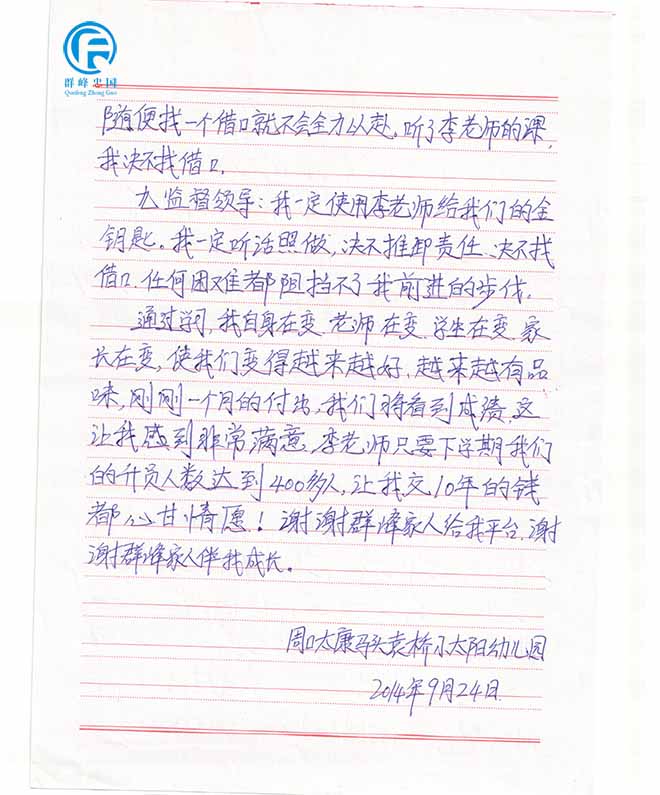 群峰忠国
Qunfeng Zhong Guo
随便找一个借口就不会全力以赴。听了李老师的课,
我决不找借口.
九.监督领导:我一定使用李老师给我们的金
钥匙。我一定听话照做,决不推卸责任.决不找
借口.任何困难都阻挡不了我前进的步伐.
通过学习,我自身在变.老师在变.学生在变.家
长在变,使我们变得越来越好.越来越有品
味,刚刚一个月的付出,我们将看到成绩.这
让我感到非常满意.李老师只要下学期我们
的升员人数达到400多人,让我交10年的钱
都心甘情愿!谢谢群峰家人给我平台.谢
谢群峰家人伴我成长。
周口太康马头袁桥小太阳幼儿园
2014年9月24日.